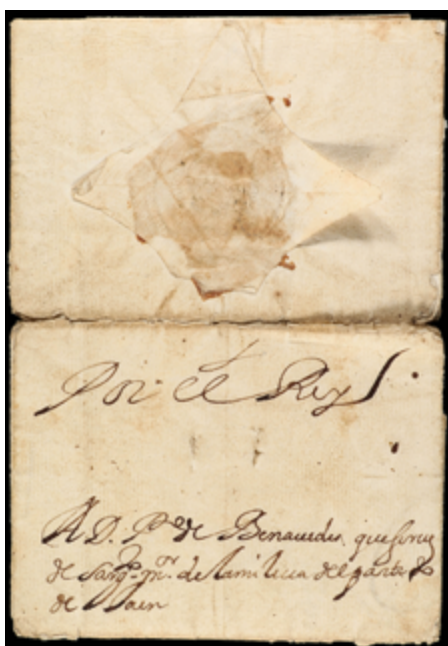 Por el Rey
A D. P.º de Benauides que sirue
de Sarg.to m.r de la milicia del partido
de Jaen